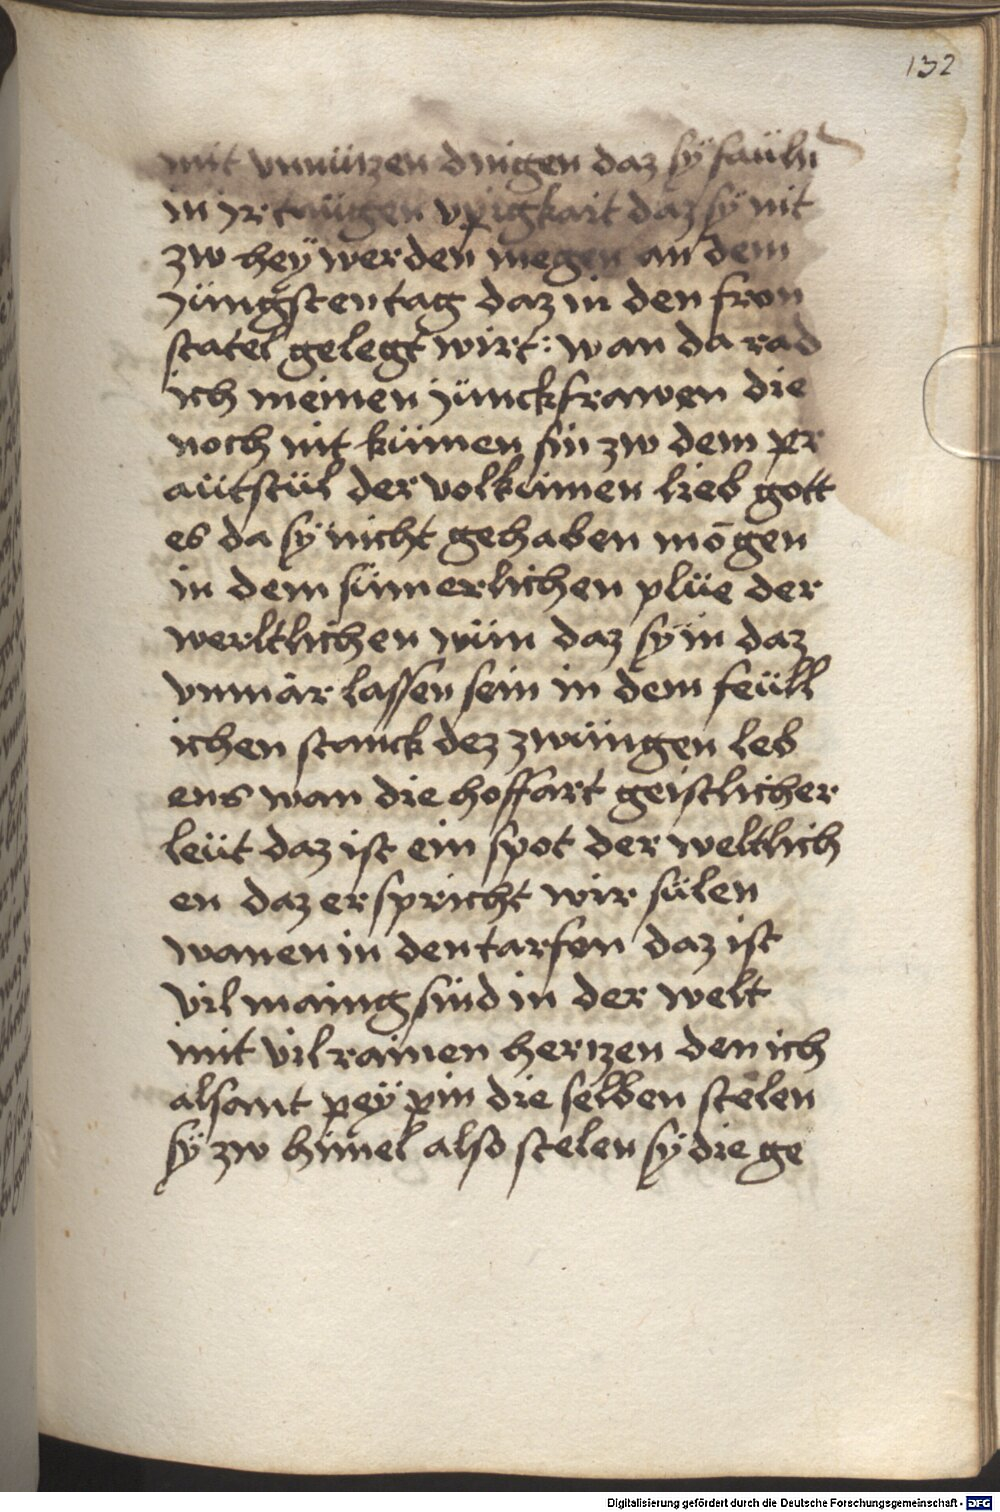 132
mit vnnützen dingen daz sÿ fauln
in jr taügen vpigkait daz sÿ nit
zw heÿ werden megen an dem
jüngsten tag daz in den fron
statel gelegt wirt: wan da rad
ich meinen jünckfrawen die
noch nit kümen sin zw dem pr
aütstül der volkümen lieb gott
es da sÿ nicht gehaben mögen
in dem sümerlichen plüe der
werltlichen wün daz sÿ in daz
vnmär lassen sein in dem feüll
ichen stanck dez zwüngen leb
ens wan die hoffart geistlicher
leüt daz ist ein spot der weltlich
en daz er spricht wir sülen
wanen in den tarfen daz ist
vil maing sind in der welt
mit vil rainen hertzen den ich
alsant peÿ pin die selben stelen
sÿ zw himel also stelen sÿ die ge
Digitalisierung gefördert durch die Deutsche Forschungsgemeinschaft - DFG